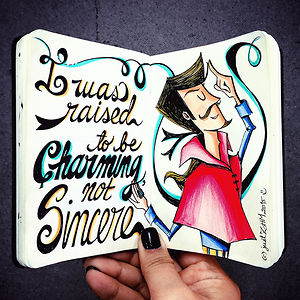 I was
raised
to be
Charming
not
Sincere